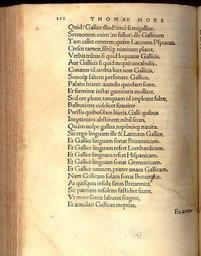 210 THOMAE MORI
Sermonem enim
Tam callet omnem, quàm Latinum
Crescit tamen, sibíque nimium placet,
Verbis tribus, si quid loquatur Gallicis.
Aut Gallicis si quid nequit vocabulis,
Conatur id, verba licet non Gallica,
Saltem personare Gallico,
Palato hiante acutulo quodam sono,
Et fœminæ instar garrientis molliter,
Sed ore pleno, tanquam id impleant fabæ,
Balbutiens videlicet suauiter
Pressis quibusdam literis, Galli quibus
Ineptientes abstinent, nihil secus,
Quàm vulpe gallus, rupibusque nauita.
Sic ergo linguam ille & Latinam Gallicè,
Et Gallicè linguam sonat Britannicam.
Et Gallicè linguam refert Lombardicam.
Et Gallicè linguam refert Hispanicam.
Et Gallicè linguam sonat Germanicam.
Et Gallicè omnem, præter vnam Gallicam.
Nam Gallicam solam sonat Britannicè.
At quisquis insula satus Britannica,
Sic patriam insolens fastidiet suam,
Vt more simiæ laboret fingere,
Et æmulari Gallicas ineptias,